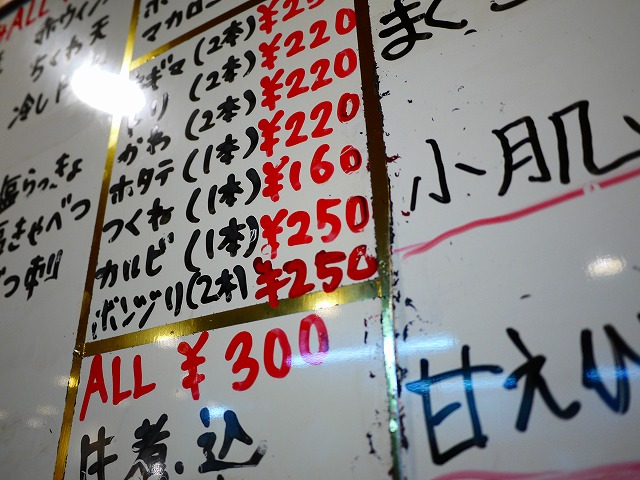 ALL
ホウィン
ちくわ天
冷し
塩らっきょ
塩きゃべつ
つ刺
マカロニ
ギマ(2本) ¥25
り(2本) ¥220
かわ(2本) ¥220
ホタテ(1本) ¥220
つくね(1本) ¥160
カルビ(1本) ¥250
ボンヅリ(2本) ¥250
ALL ¥300
牛煮込
まぐ
小肌
甘えび